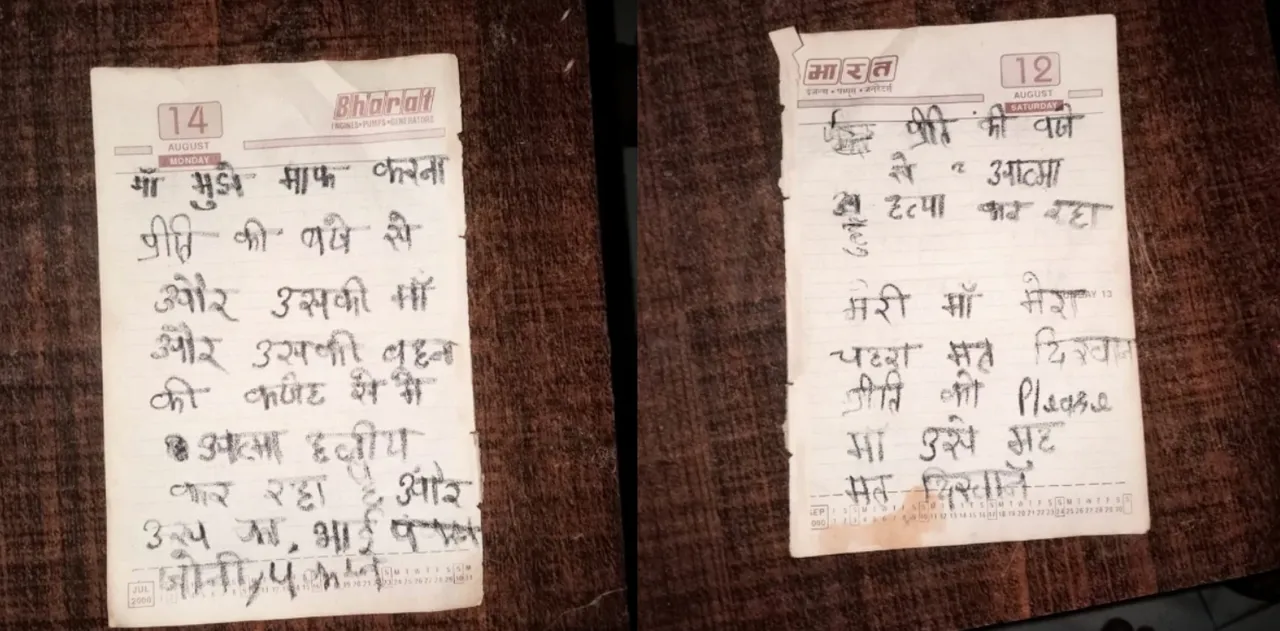 14
AUGUST
MONDAY
Bharat
ENGINES•PUMPS•GENERATORS
माँ मुझे माफ करना
प्रीति की वजे से
और उसकी माँ
और उसकी बहन
की वजेह से मे
आत्मा
कर रहा है और
उस का, भाई
जोनी
JUL
2000
भारत
12
AUGUST
SATURDAY
प्रीति की वजे
से आत्मा
हत्या कर रहा
मेरी माँ मेरा
चहरा मत दिखाना
प्रीति को Please
मा उसे
मत दिखाना
SEP